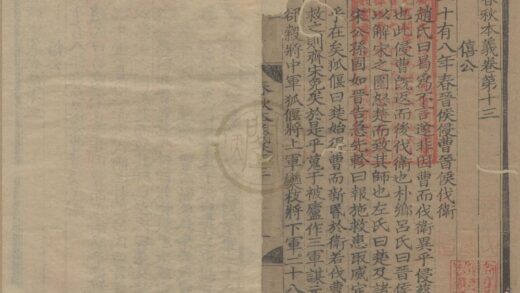 春秋本義卷第十三
僖公
十有八年春晉侯侵曹晉侯伐衛
趙氏曰曷爲不言遂非因曹而伐衛異乎侵蔡
也此侵曹既返而後伐衛也朴鄉呂氏曰晉侯
以解宋之圍怒楚而致其師也左氏曰楚及諸
宋公孫固如晉告急先軫曰報施救患取威定
乎在矣狐偃曰楚始得曹而新昏於衛若伐曹
救之則齊宋免矣於是乎蒐于被廬作三軍謀元
郤縠將中軍狐偃將上軍欒枝將下軍二十八